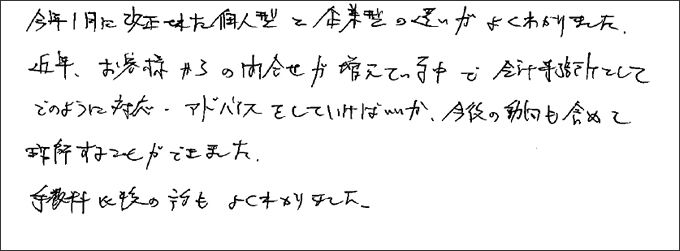 今年1月に改正された個人型と企業型の違いがよくわかりました。
近年、お客様からの問合せが増えている中で会計事務所として
どのように対応・アドバイスをしていけばいいか、今後の動向も含めて
理解することができました。
手数料比較の話もよくわかりました。